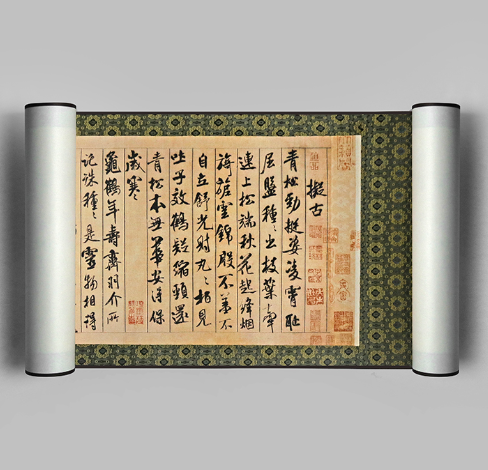 擬古
青松勁挺姿凌霄恥
屈盤種〻出枝葉牽
連上松端秋花起絳烟
旖旎雲錦殷不羞不
自立舒光射丸〻柏見
吐子效鶴疑縮頸還
青松本無華安得保
歲寒
龜鶴年壽齊羽介所
託殊種〻是靈物相得